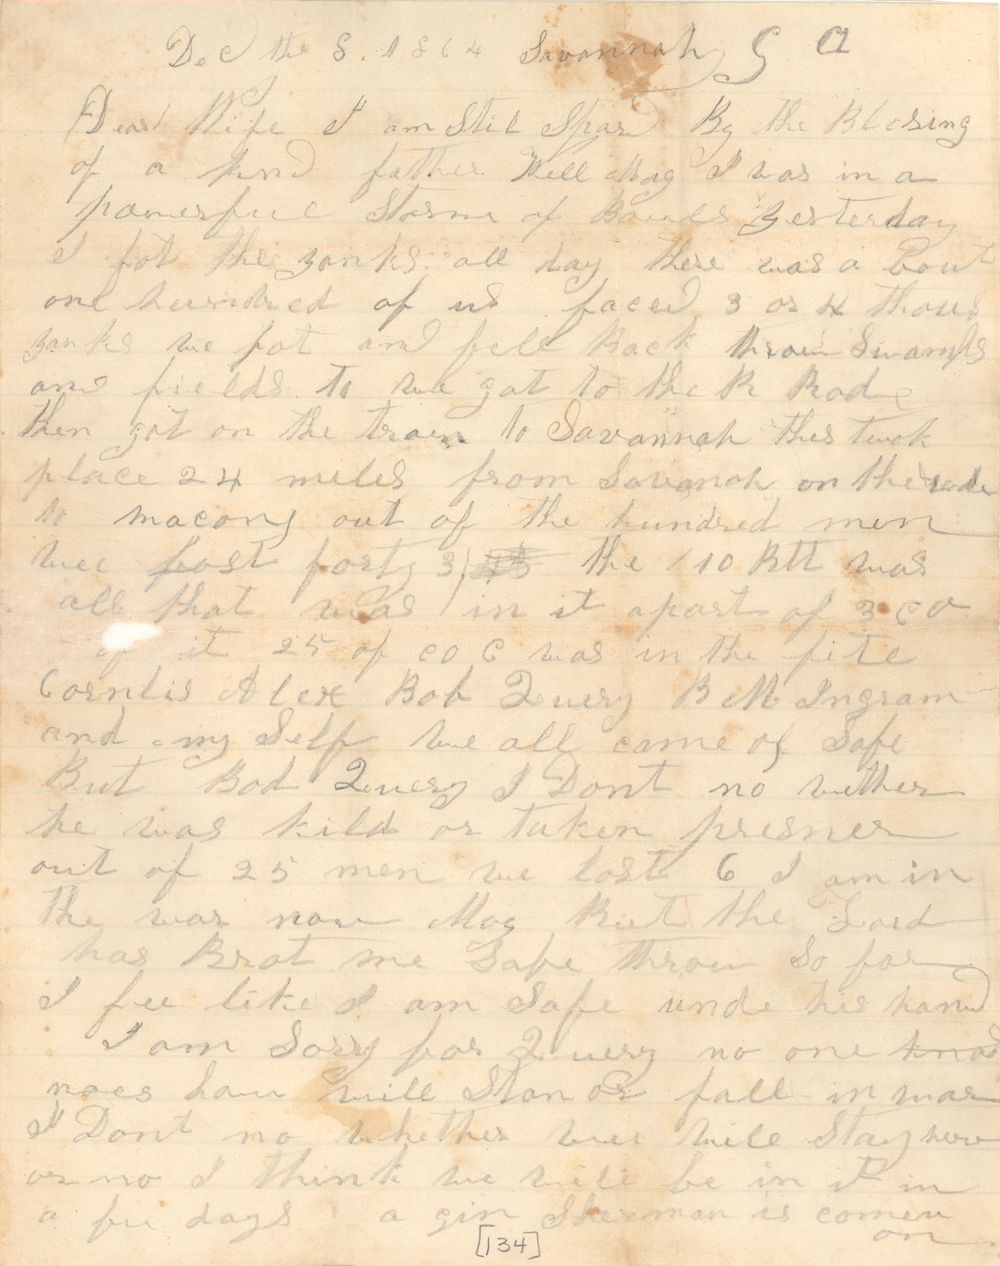 Dec the 8. 1864 Savannah G a
Dear Wife I am Stil Spard By the Blesing
of a kind father Well Mag I was in a
powerfull Storm of Bauls yesterday
I fot the yanks all day there was a Bout
one hundred of us faced 3 or 4 thous
yanks we fot and fell Back throu Swamps
and fields to we got to the R Rode
then got on the train to Savannah this took
place 24 miles from Savanah on the rode
to macong out of the hundred men
wee lost forty 3 the 10 Btt was
all that was in it apart of 3 co
of it 25 of co C was in the fite
Cornlis Alex Bob Query B M Ingram
and my Self we all came of Safe
But Bob Query I Dont no wether
he was kild or taken presner
out of 25 men we lost 6 I am in
the war now Mag But the Lord
has Brot me Safe throu So far
I fee like I am Safe unde his hand
I am Sorry for Query no one
noes how will Stan or fall in war
I Dont no whether wee will Stay here
or no I think we will be in it in
a few days a gin Sherman is comen
on
[134]